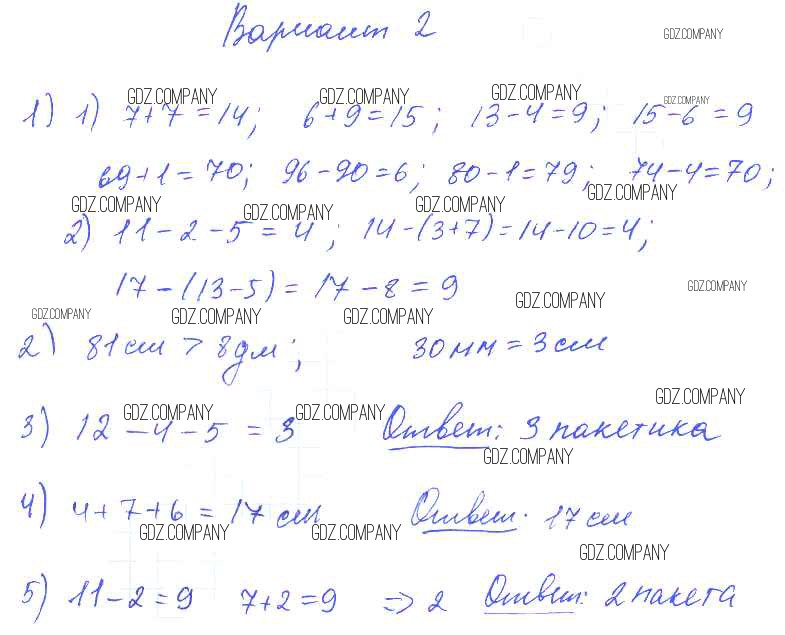 Вариант 2
GDZ.COMPANY
GDZ.COMPANY GDZ.COMPANY GDZ.COMPANY GDZ.COMPANY
1) 1) 7+7=14; 6+9=15; 13-4=9; 15-6=9
69+1=70; 96-90=6; 80-1=79; 74-4=70;
GDZ.COMPANY GDZ.COMPANY GDZ.COMPANY GDZ.COMPANY
2) 11-2-5=4; 14-(3+7)=14-10=4;
17-(13-5)=17-8=9
GDZ.COMPANY GDZ.COMPANY GDZ.COMPANY GDZ.COMPANY GDZ.COMPANY
2) 81см > 8дм; 30мм = 3см
GDZ.COMPANY GDZ.COMPANY GDZ.COMPANY
3) 12-4-5=3 Ответ: 3 пакетика
GDZ.COMPANY
4) 4+7+6=17 см Ответ. 17 см
GDZ.COMPANY GDZ.COMPANY GDZ.COMPANY
5) 11-2=9 7+2=9 => 2 Ответ: 2 пакета